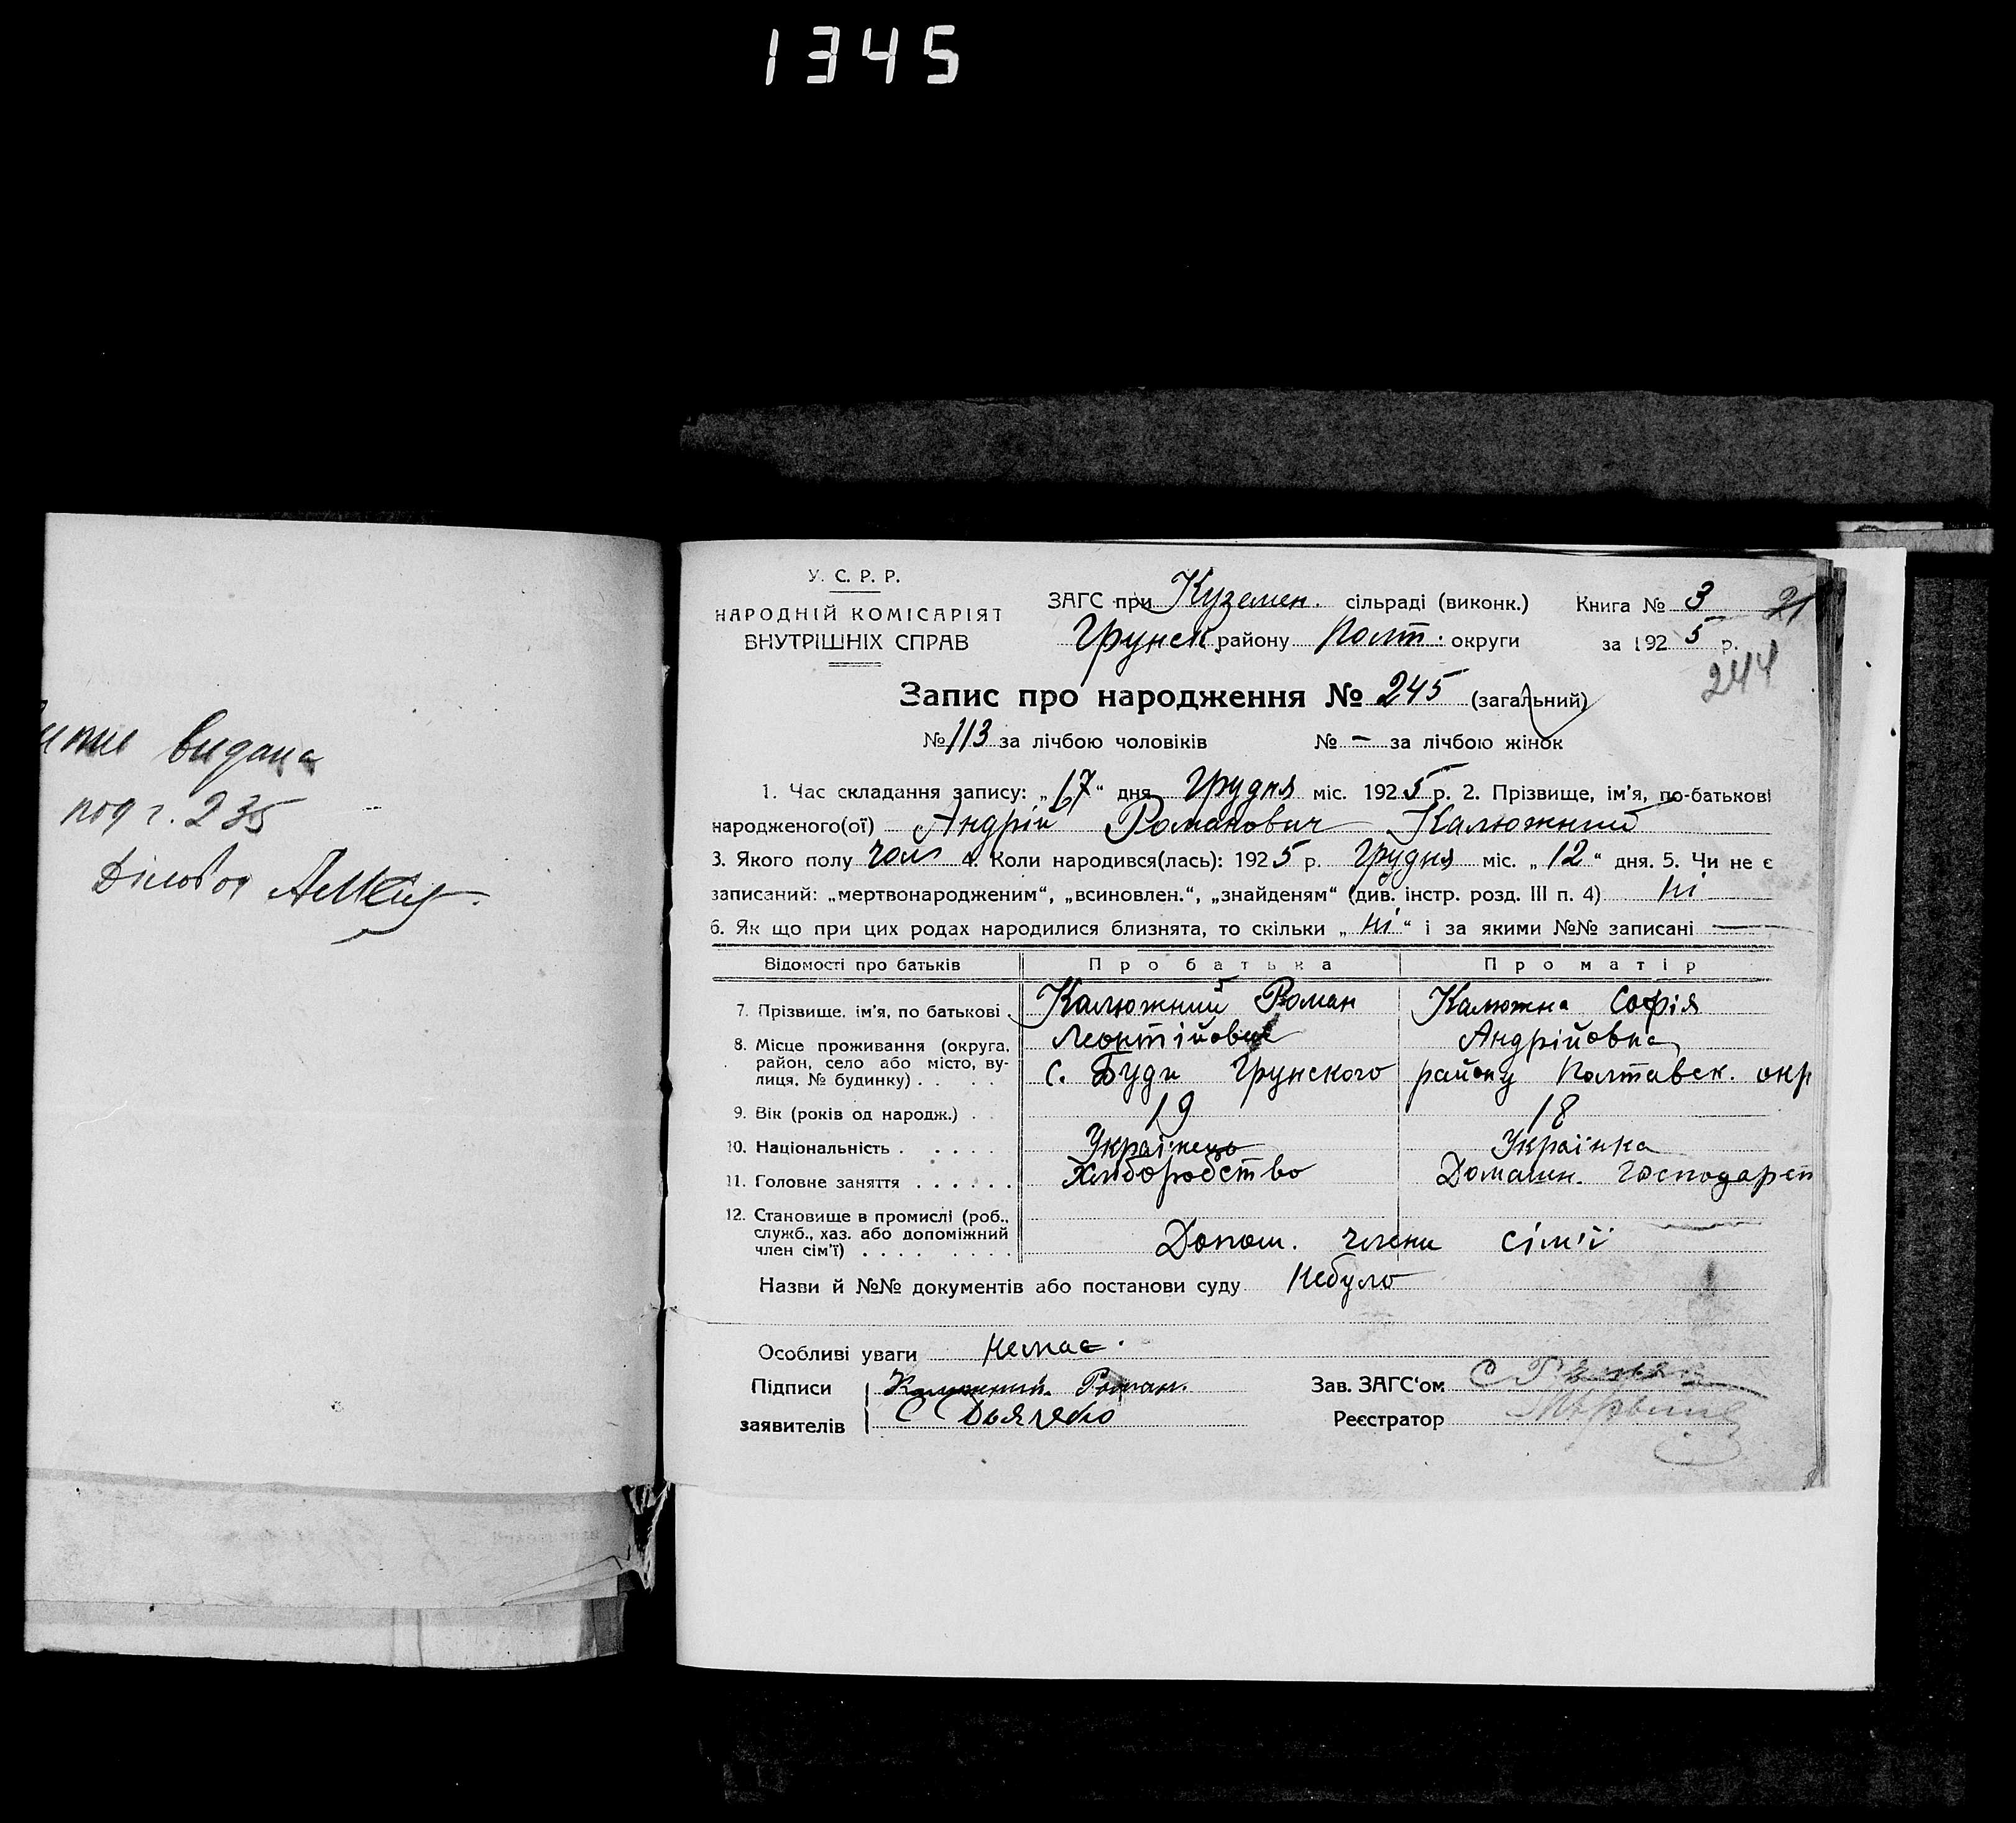 1345
видана
под г. 235
У. С. Р. Р.
НАРОДНІЙ КОМІСАРІЯТ
ВНУТРІШНІХ СПРАВ
ЗАГС при Куземен. сільраді (виконк.)
Грунск. району Полт. округи
Книга № 3
21
за 1925 р.
244
Запис про народження № 245 (загальний)
№ 113 за лічбою чоловіків № — за лічбою жінок
1. Час складання запису: „17“ дня Грудня міс. 1925 р. 2. Прізвище, ім’я, по-батькові
народженого(ої) Андрій Романович Калюжний
3. Якого полу чол 4. Коли народився(лась): 1925 р. Грудня міс. „12“ дня. 5. Чи не є
записаний: „мертвонародженим“, „всиновлен.“, „знайденям“ (див. інстр. розд. III п. 4) ні
6. Як що при цих родах народилися близнята, то скільки „ні“ і за якими №№ записані —
Відомості про батьків Про батька Про матір
7. Прізвище, ім’я, по батькові . Калюжний Роман Калюжна Софія
Леонтійович Андрійовна
8. Місце проживання (округа, район, село або місто, ву-
лиця, № будинку) . . . . с. Буди Грунского району Полтавск. окр
9. Вік (років од народж.) . . 19 18
10. Національність . . . . . Українець Українка
11. Головне заняття . . . . . . Хліборобство Домашн. Господарст
12. Становище в промислі (роб.,
служб., хаз. або допоміжний
член сім’ї) . . . . . . . . . Допом. члени сім’ї
Назви й №№ документів або постанови суду Небуло
Особливі уваги Немає.
Підписи Калюжний Роман.
заявителів С Дьяченко
Зав. ЗАГС‘ом
Реєстратор